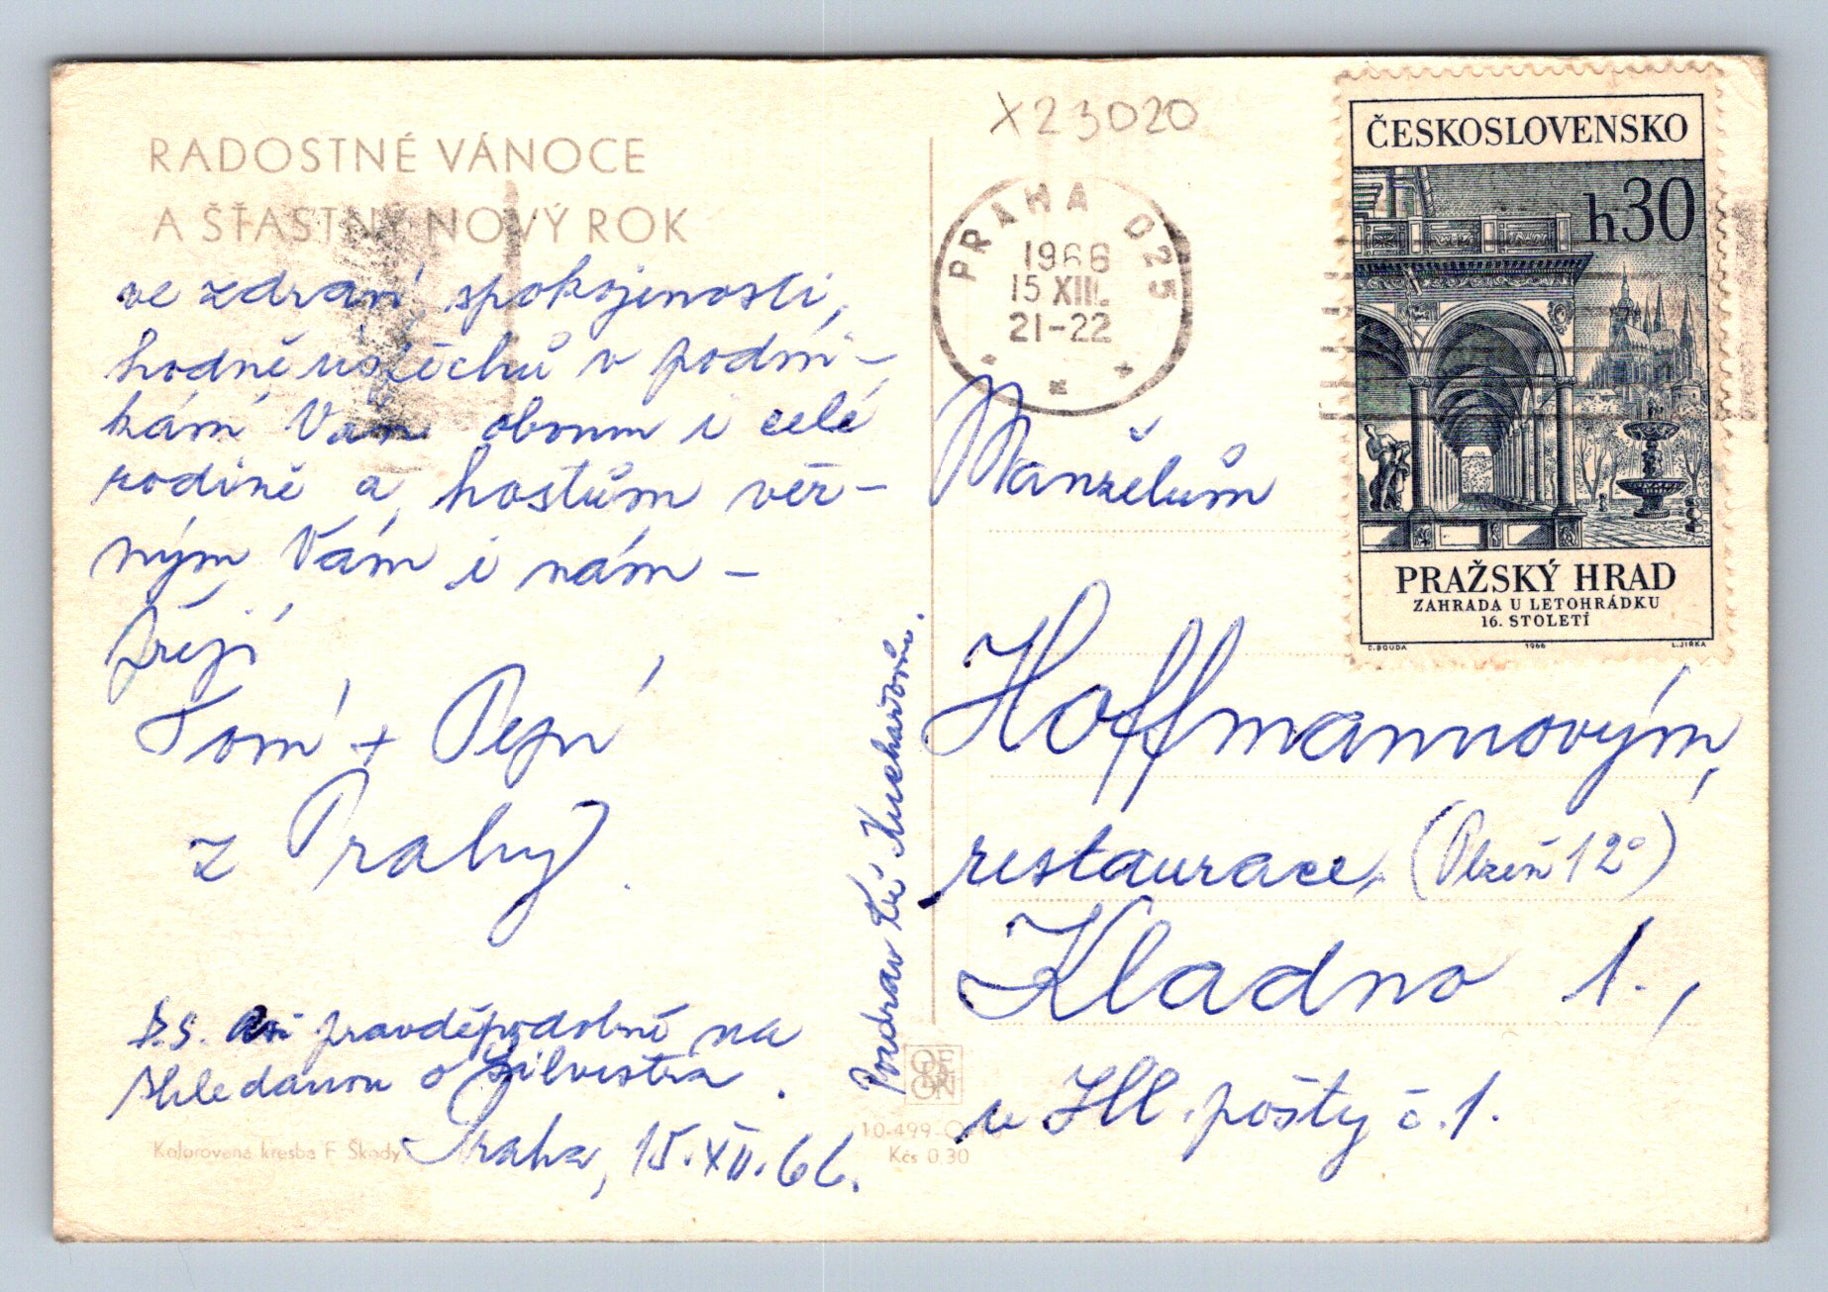 RADOSTNÉ VÁNOCE
A ŠŤASTNÝ NOVÝ ROK
ve zdraví, spokojenosti,
hodně úspěchů v podni-
kání Vám oboum i celé
rodině a hostům věr-
ným Vám i nám -
přejí
Tom + Pepa
z Prahy.
P.S. pravděpodobně na
shledanou o Silvestra.
Praha, 15.XII.66.
Kolorovaná kresba F. Škody
Pozdrav Kuchařovi.
X23020
PRAHA 025
1966
15 XII.
21-22
ČESKOSLOVENSKO
h30
PRAŽSKÝ HRAD
ZAHRADA U LETOHRÁDKU
16. STOLETÍ
C. BOUDA 1966 L. JIRKA
Manželům
Hoffmannovým,
restaurace, (Plzeň 12°)
Kladno 1.,
u Hl. pošty č. 1.
ODEON
10-499-
Kčs 0.30